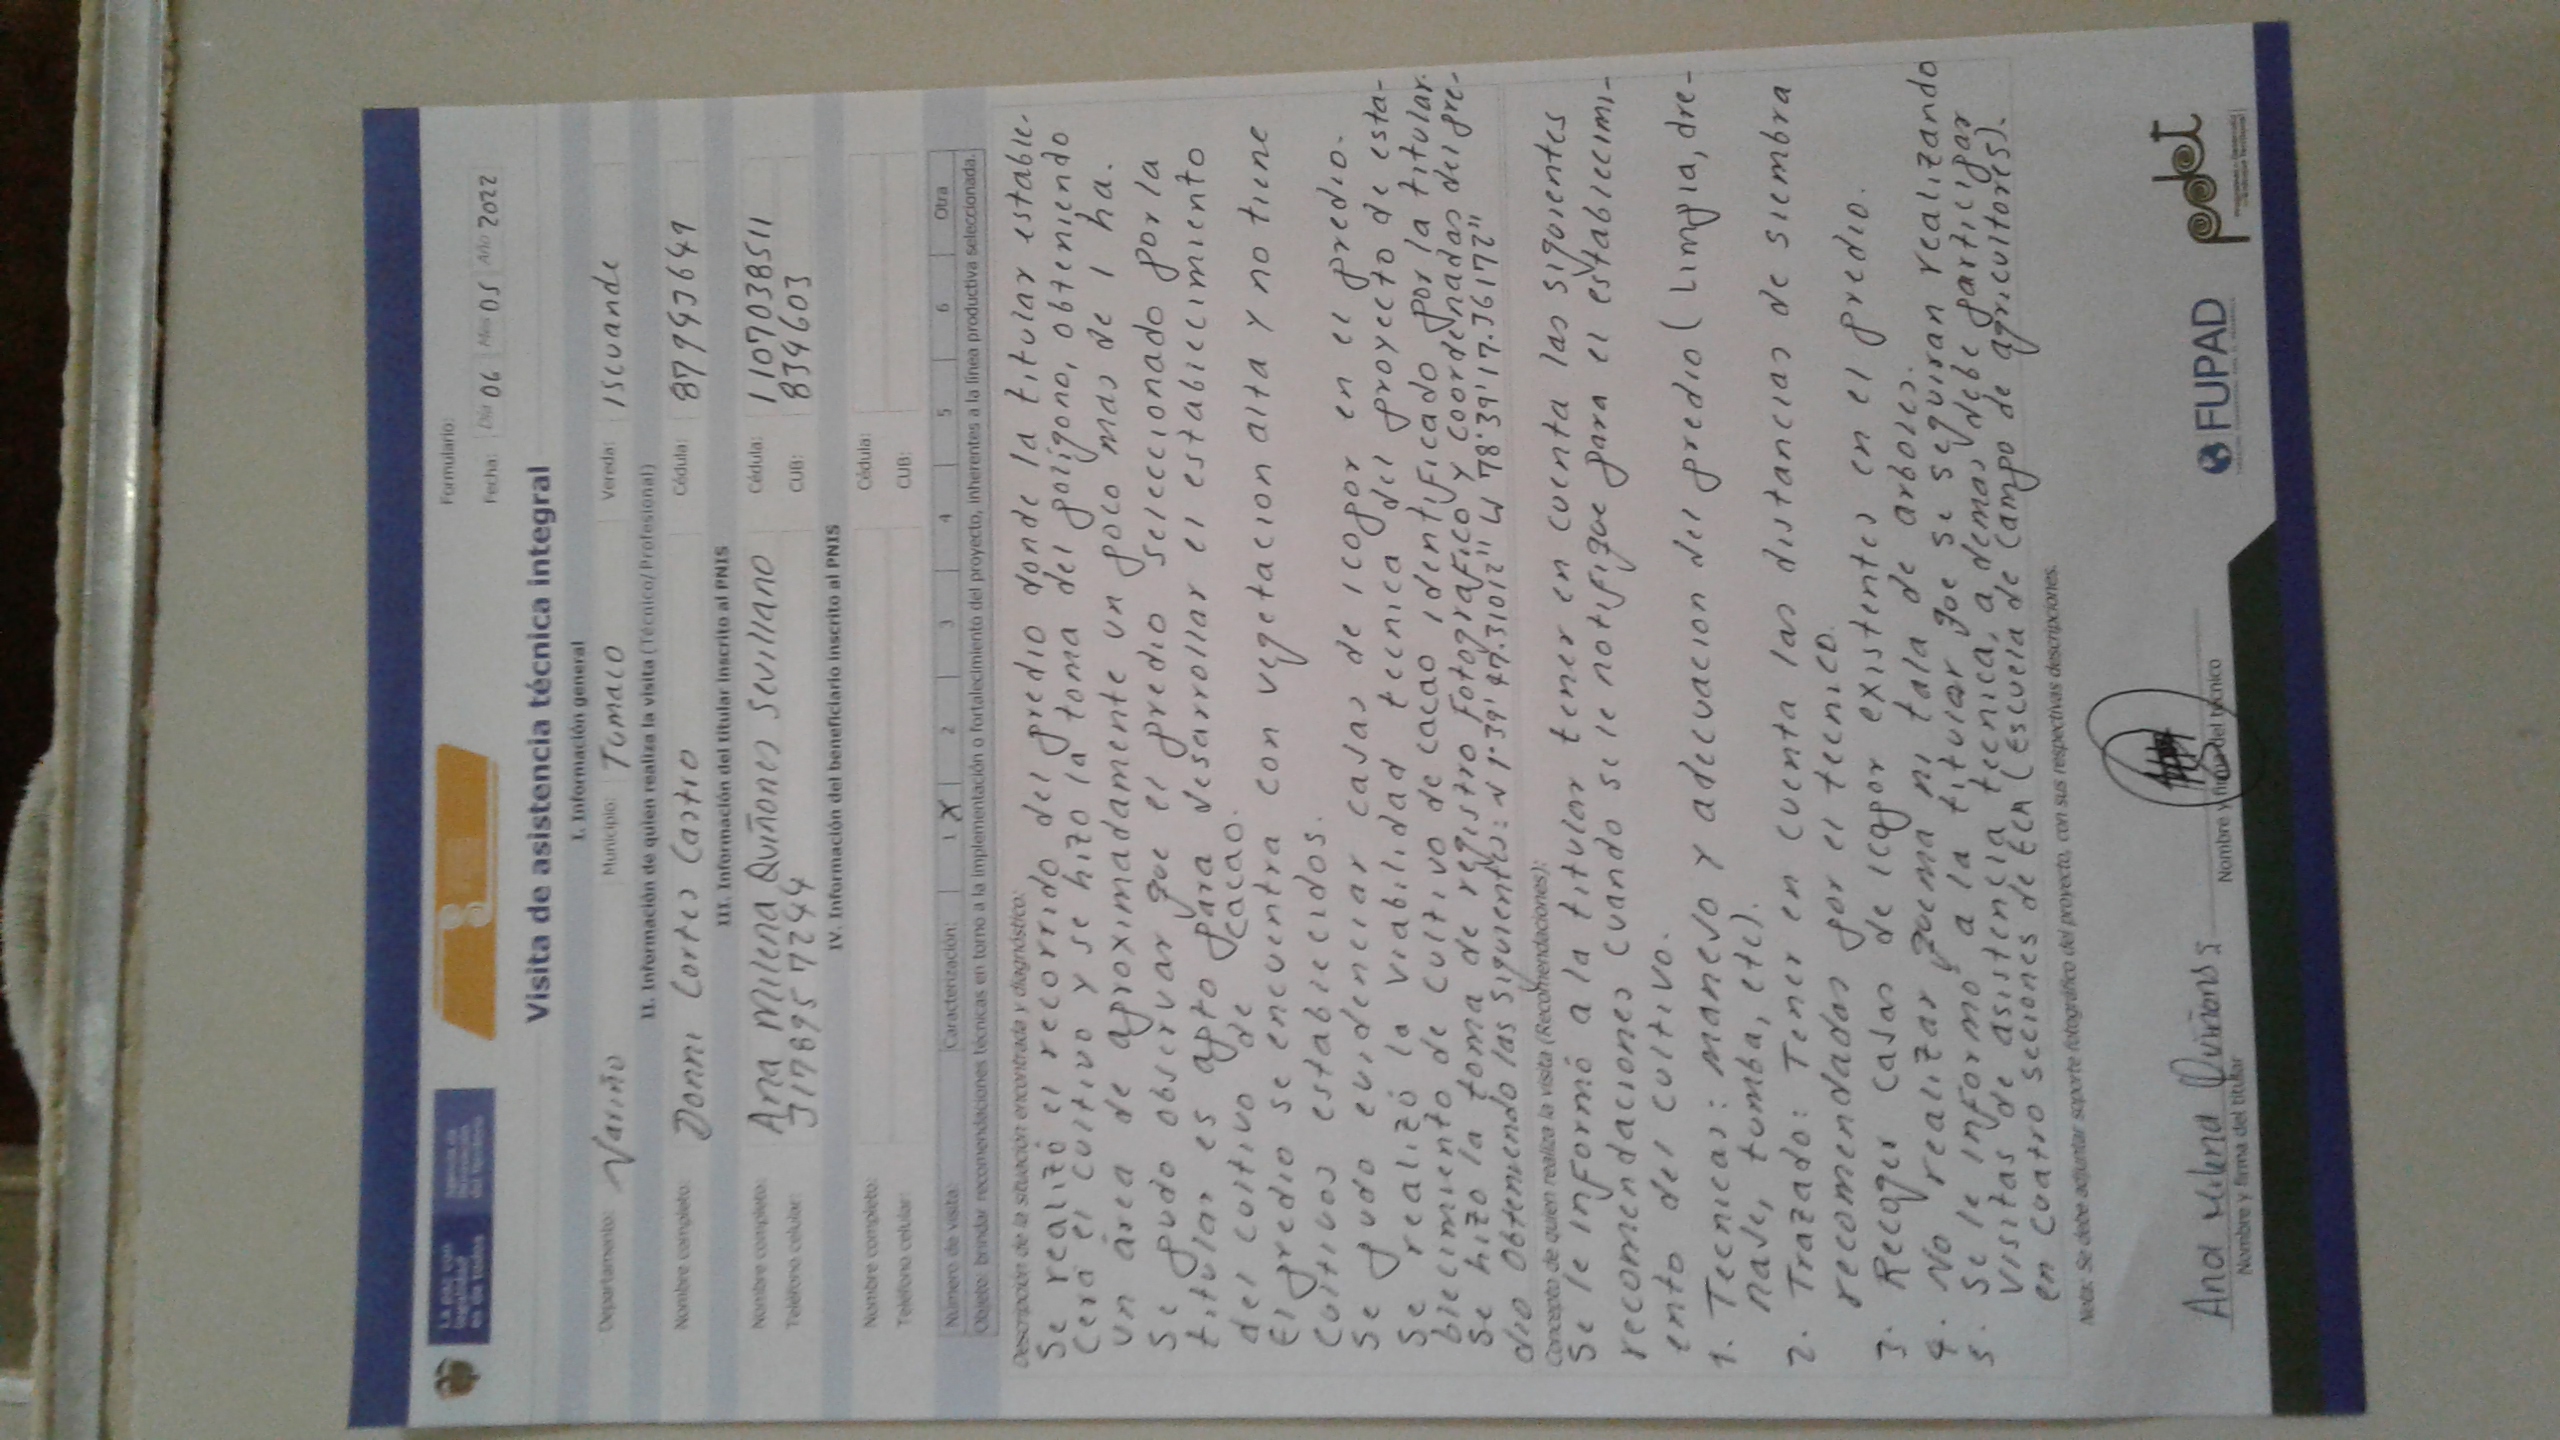 La paz con legalidad es de todos
Formulario:
Fecha: Día 06 Mes 05 Año 2022
Visita de asistencia técnica integral
I. Información general
Departamento: Nariño Municipio: Tumaco Vereda: Iscuande
II. Información de quien realiza la visita (Técnico/Profesional)
Nombre completo: Donni Cortes Castro Cédula:
III. Información del titular inscrito al PNIS
Nombre completo: Ana Milena Quiñones Sevillano Cédula: 1107038511
Teléfono celular: 3178957244 CUB: 834603
IV. Información del beneficiario inscrito al PNIS
Nombre completo: Cédula:
Teléfono celular: CUB:
Número de visita: Caracterización: 1 X 2 3 4 5 6 Otra
Objeto: brindar recomendaciones técnicas en torno a la implementación o fortalecimiento del proyecto, inherentes a la línea productiva seleccionada.
Descripción de la situación encontrada y diagnóstico:
Se realizó el recorrido del predio donde la titular estable-
cera el cultivo y se hizo la toma del polígono, obteniendo
un área de aproximadamente un poco mas de 1 ha.
Se pudo observar que el predio seleccionado por la
titular es apto para desarrollar el establecimiento
del cultivo de cacao.
El predio se encuentra con vegetacion alta y no tiene
cultivos establecidos.
Se pudo evidenciar casas de icopor en el predio.
Se realizó la viabilidad tecnica del proyecto de esta-
blecimiento de cultivo de cacao identificado por la titular.
Se hizo la toma de registro fotografico y coordenadas del pre-
dio obteniendo las siguientes: N 1°39'47.31012" W 78°39'17.36172"
Concepto de quien realiza la visita (Recomendaciones):
Se le informó a la titular tener en cuenta las siguientes
recomendaciones cuando se le notifique para el establecimi-
ento del cultivo.
1. Tecnicas: manevo y adecuacion del predio (Limpia, dre-
naje, tumba, etc).
2. Trazado: Tener en cuenta las distancias de siembra
recomendadas por el tecnico.
3. Recoger casas de icopor existentes en el predio.
4. No realizar quema ni tala de arboles.
5. Se le informo a la titular que se seguiran realizando
visitas de asistencia tecnica, a demas debe participar
en cuatro seciones de ECA (Escuela de campo de agricultores).
Nota: Se debe adjuntar soporte fotográfico del proyecto, con sus respectivas descripciones.
Ana Milena Quiñones
Nombre y firma del titular Nombre y firma del técnico
FUPAD pdet